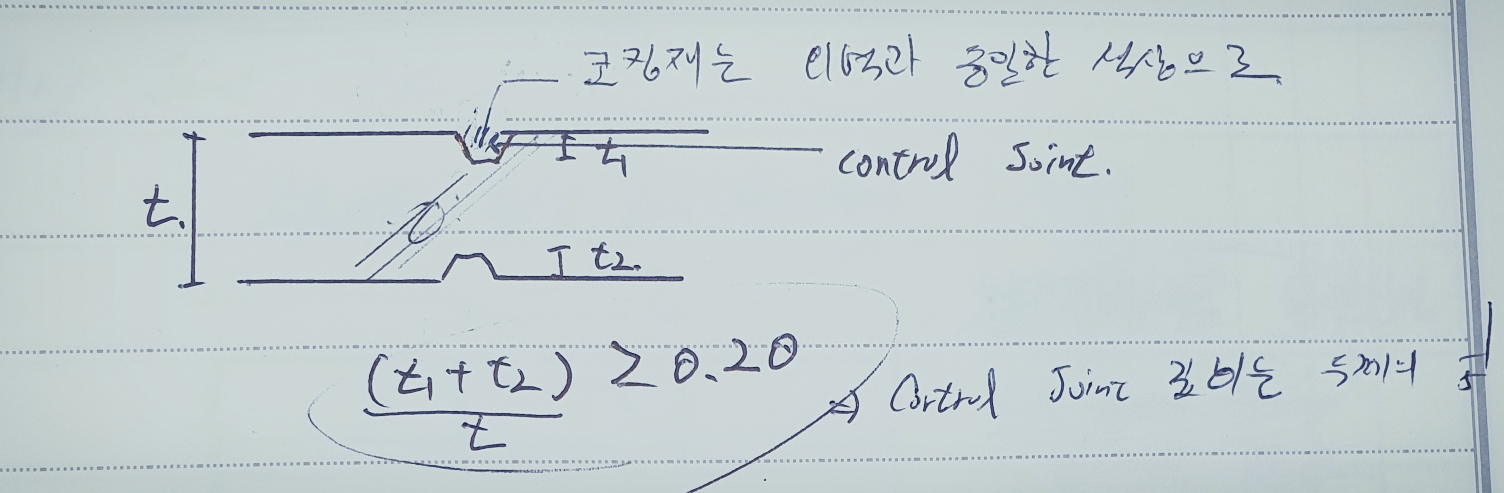 코킹재는 외벽과 동일한 색상으로
t1
control Joint.
t.
t2.
(t1+t2)/t ≥ 0.20
⇒ Control Joint 깊이는 두께의 1/5